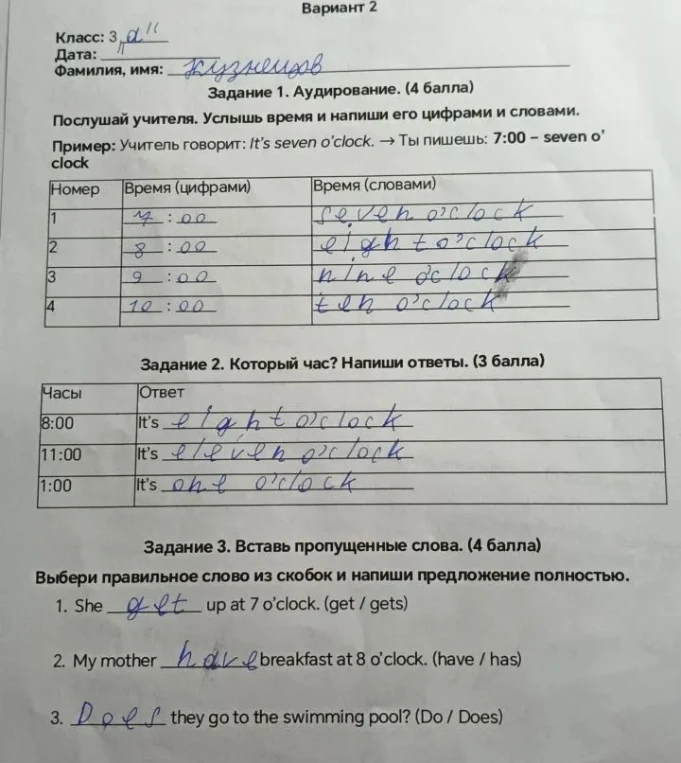 Вариант 2
Класс: 3 "а"
Дата:
Фамилия, имя: Кузнецов
Задание 1. Аудирование. (4 балла)
Послушай учителя. Услышь время и напиши его цифрами и словами.
Пример: Учитель говорит: It's seven o'clock. → Ты пишешь: 7:00 – seven o'
clock
Номер Время (цифрами) Время (словами)
1 7 : 00 seven o'clock
2 8 : 00 eight o'clock
3 9 : 00 nine o'clock
4 10 : 00 ten o'clock
Задание 2. Который час? Напиши ответы. (3 балла)
Часы Ответ
8:00 It's eight o'clock
11:00 It's eleven o'clock
1:00 It's one o'clock
Задание 3. Вставь пропущенные слова. (4 балла)
Выбери правильное слово из скобок и напиши предложение полностью.
1. She get up at 7 o'clock. (get / gets)
2. My mother have breakfast at 8 o'clock. (have / has)
3. Does they go to the swimming pool? (Do / Does)